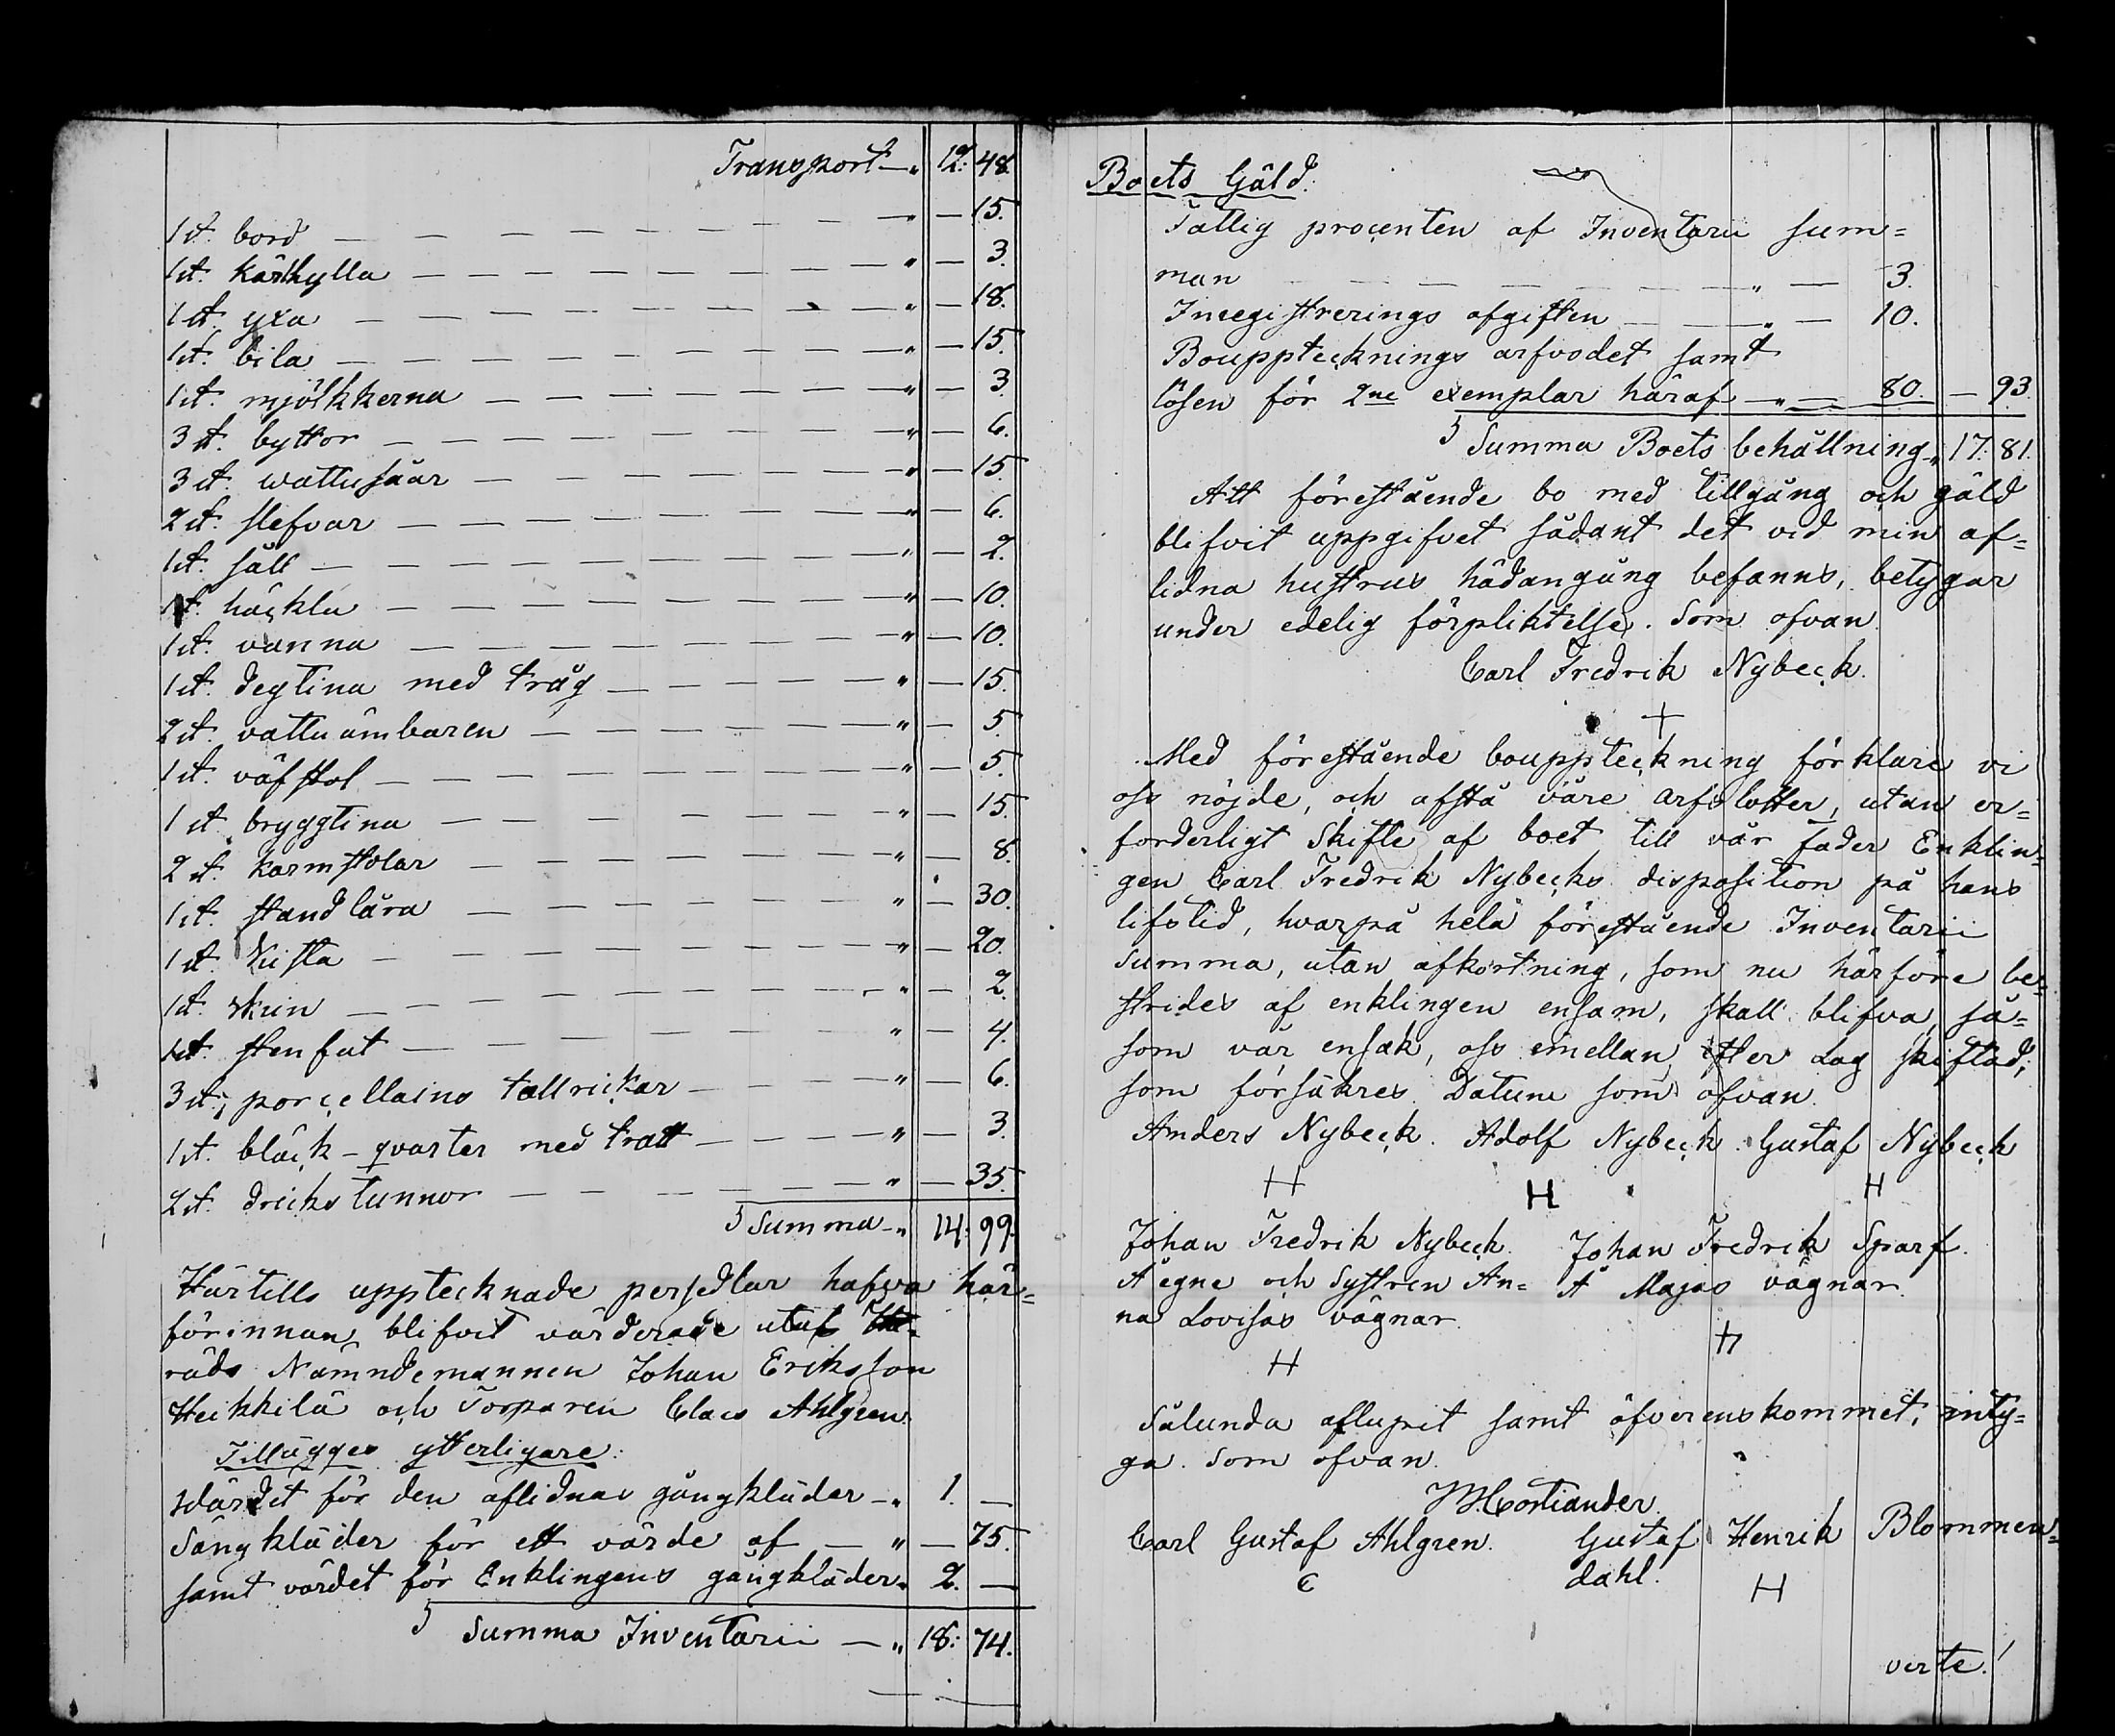 Transport — „ 12. 48.
1 st. bord — „ — 15.
1 st. kärlhylla — „ — 3.
1 st. yxa — „ — 18.
1 st. bila — „ — 15.
1 st. mjölkkerna — „ — 3.
3 st. byttor — „ — 6.
3 st. wattusåar — „ — 15.
2 st. slefvar — „ — 6.
1 st. såll — „ — 2.
1 st. häckla — „ — 10.
1 st. vanna — „ — 10.
1 st. degtina med tråg — „ — 15.
2 st. vattuämbaren — „ — 5.
1 st. väfstol — „ — 5.
1 st. bryggtina — „ — 15.
2 st. karmstolar — „ — 8.
1 st. standlåra — „ — 30.
1 st. kista — „ — 20.
1 st. skrin — „ — 2.
1 st. stenfat — „ — 4.
3 st. porcellains tallrickar — „ — 6.
1 st. bläck-qvarter med tratt — „ — 3.
2 st. dricks tunnor — „ — 35.
Summa „ 14. 99.
Härtills upptecknade persedlar hafva här=
förinnan blifvit värderade utaf Hä=
rads Nämndemannen Johan Eriksson
Heikkilä och Torparen Claes Ahlgren.
Tillägges ytterligare:
Wärdet för den aflidnas gångkläder — „ 1. —
Sängkläder för ett värde af — „ — 75.
samt värdet för Enklingens gångkläder „ 2. —
Summa Inventarii — „ 18: 74.
Boets Gäld.
Fattig procenten af Inventarii sum=
man — „ — 3.
Inregistrerings afgiften — „ — 10.
Bouppteckning​s arfvodet samt
lösen för 2ne exemplar häraf — „ — 80. — 93.
Summa Boets behållning „ 17. 81.
Att förestående bo med tillgång och gäld
blifvit uppgifvet sådant det vid min af=
lidna hustrus hädangång befanns, betygar
under edelig förpliktelse. Som ofvan.
Carl Fredrik Nybeck.
+
Med förestående bouppteckning förklare vi
oss nöjde, och afstå våre arfslotter, utan er=
forderligt Skifte af boet till vår fader Enklin=
gen Carl Fredrik Nybecks disposition på hans
lifstid, hvarpå hela förestående Inventarii
summa, utan afkortning, som nu härföre be=
strides af enklingen ensam, skall blifva, så=
som vår ensak, oss emellan, efter Lag skiftad;
som försäkres. Datum som ofvan.
Anders Nybeck. Adolf Nybeck. Gustaf Nybeck
H H H
Johan Fredrik Nybeck. Johan Fredrik Sparf.
Å egne och Systren An= Å Majas vägnar.
na Lovisas vägnar.
H
Sålunda aflupit samt öfverenskommet, inty=
ga. Som ofvan.
Cortiander.
Carl Gustaf Ahlgren. Gustaf Henrik Blommen=
dahl.
H
verte!